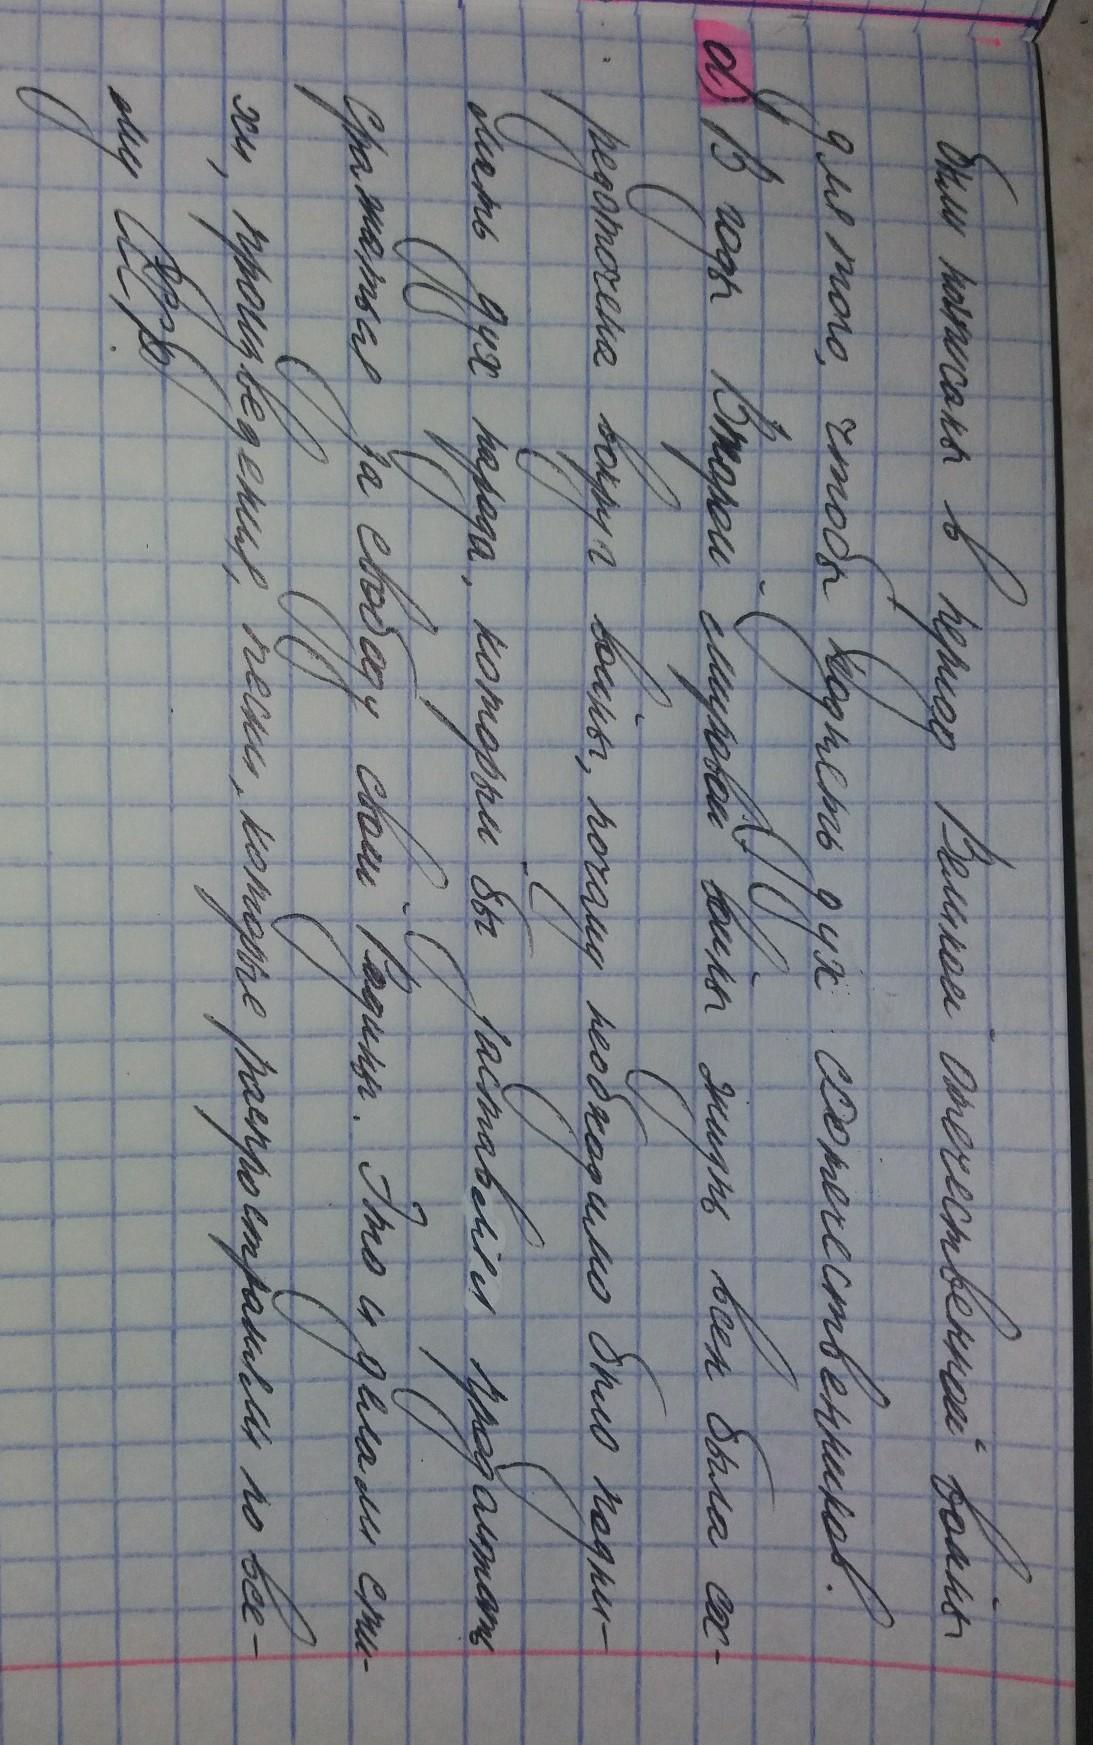 были написаны в период Великой Отечественной войны
для того, чтобы поднять дух соотечественников.
d) В годы Второй мировой войны жизнь всех была сос-
редоточена вокруг войны, почему необходимо было подни-
мать дух народа, который бы заставлял продолжать
сражаться за свободу своей Родины. Это и делали сти-
хи, произведения, песни, которые распространяли по все-
му